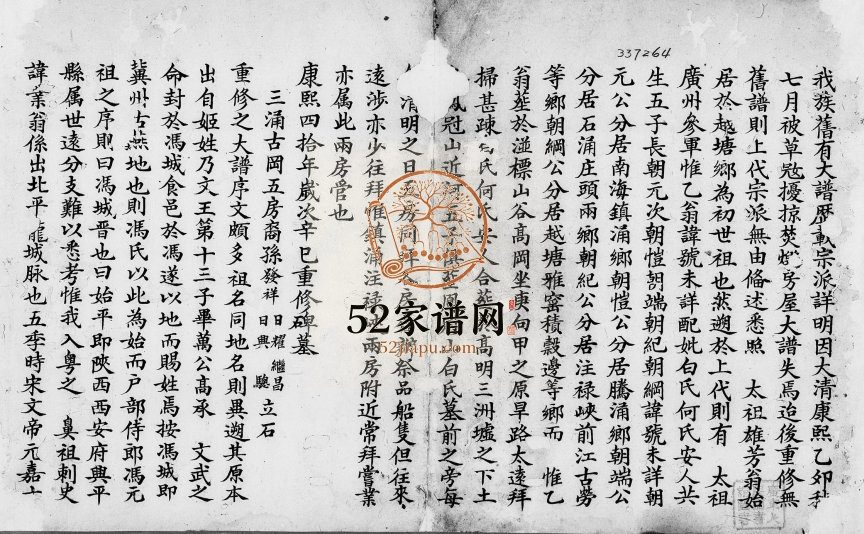 337264
我族舊有大譜歷載宗派詳明因大清康熙乙卯秋
七月被草冦擾掠焚燬房屋大譜失焉迨後重修無
舊譜則上代宗派無由僃述悉照 太祖雄芳翁始
居於越塘鄉為初世祖也然遡於上代則有 太祖
廣州參軍惟乙翁諱號未詳配妣白氏何氏安人共
生五子長朝元次朝愷朝端朝紀朝綱諱號未詳朝
元公分居南海鎮涌鄉朝愷公分居騰涌鄉朝端公
分居石涌庄頭兩鄉朝紀公分居注禄峽前江古勞
等鄉朝綱公分居越塘雅窰積穀邊等鄉而 惟乙
翁塟於湴標山谷髙岡坐庚向甲之原早路太遠拜
掃甚踈白氏何氏安人合塟髙明三洲墟之下土
鳳冠山近河五子 塟鳳 山白氏墓前之旁每
清明之日五房同 房辦祭品船隻但往來
遠涉亦少往拜惟鎮涌注禄 兩房附近常拜嘗業
亦属此兩房管也
康熙四拾年歲次辛巳重修碑墓
三涌古岡五房裔孫發祥 日耀 日興 繼昌 聰 立石
重修之大譜序文頗多祖名同地名則異遡其原本
出自姬姓乃文王第十三子畢萬公髙承 文武之
命封於馮城食邑於馮遂以地而賜姓焉按馮城即
冀州古燕地也則馮氏以此為始而户部侍郎馮元
祖之序則曰馮城晋也曰始平即陜西西安府興平
縣属世遠分支難以悉考惟我入粤之 鼻祖刺史
諱業翁係出北平 龍城脉也五季時宋文帝元嘉十
52家谱网
52jiapu.com